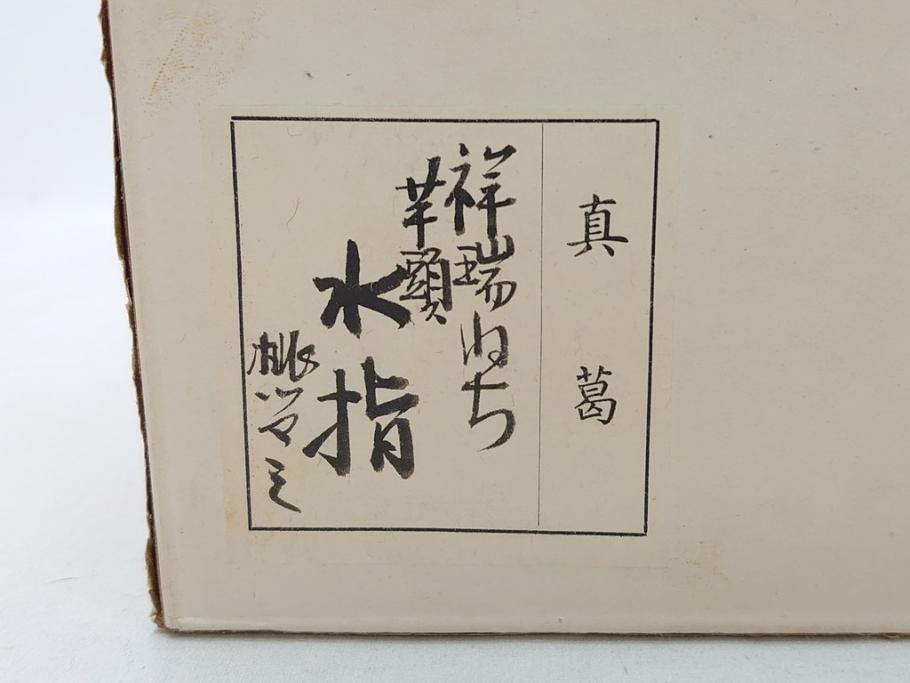 真葛
祥瑞ねち
芋頭
水指